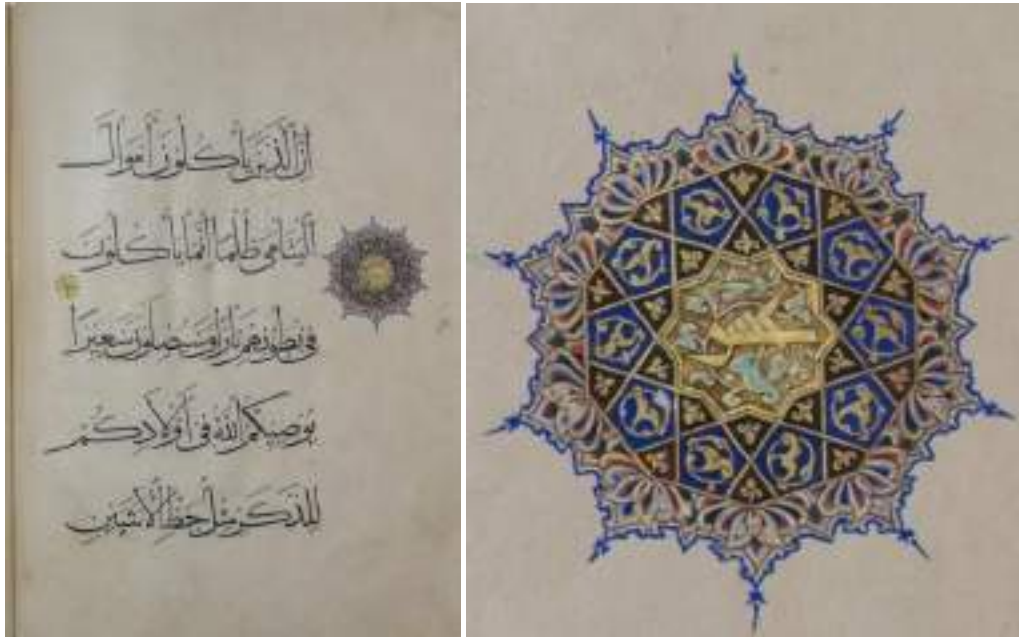 إِنَّ الَّذِينَ يَأْكُلُونَ أَمْوَالَ
الْيَتَامَى ظُلْمًا إِنَّمَا يَأْكُلُونَ
فِي بُطُونِهِمْ نَارًا وَسَيَصْلَوْنَ سَعِيرًا
يُوصِيكُمُ اللَّهُ فِي أَوْلَادِكُمْ
لِلذَّكَرِ مِثْلُ حَظِّ الْأُنْثَيَيْنِ